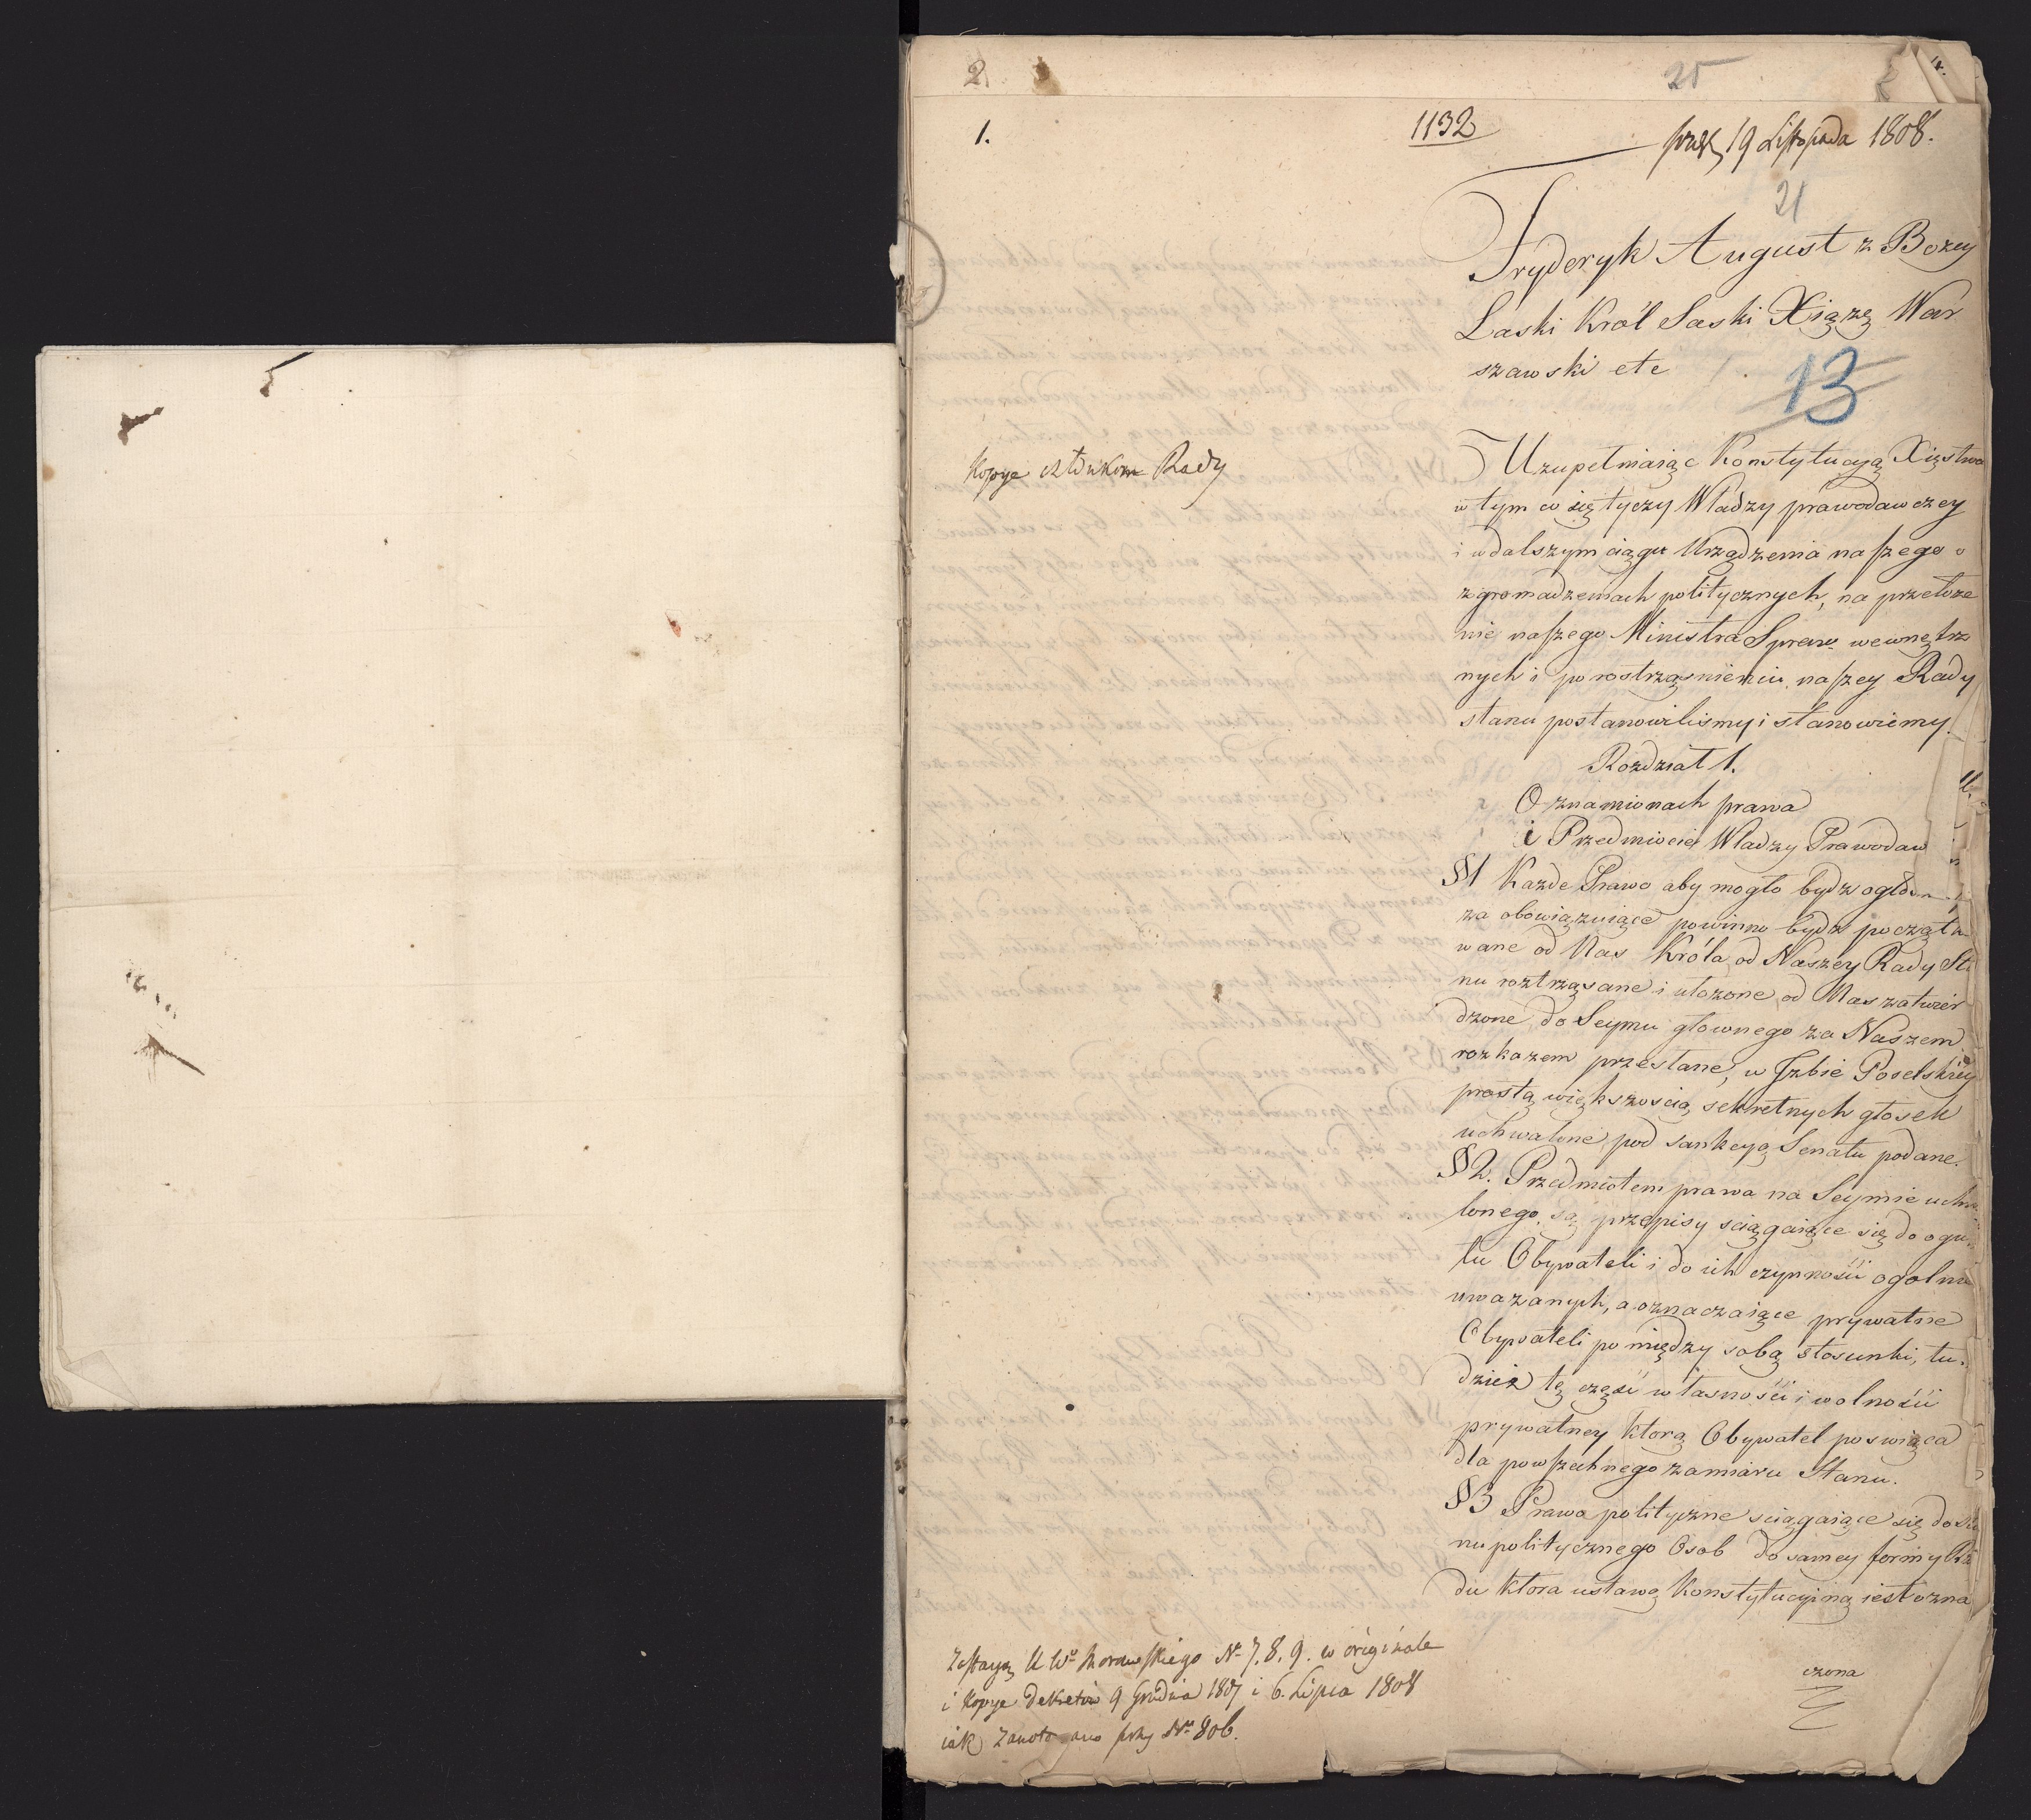 2.
25
1.
1132
19 Listopada 1808.
21
Fryderyk August z Bozey
Łaski Król Saski Xiązę War
szawski etc
13
Kopye członkom Rady
Uzupełniaiąc Konstytucyą Xięstwa
w tym co się tyczy Władzy prawodawczey
i w dalszym ciągu Urządzenia naszego o
zgromadzeniach politycznych, na przełoże
nie naszego Ministra Spraw wewnętrz
nych i po rostrząsnieniu naszey Rady
stanu postanowiliśmy i stanowiemy.
Rozdział 1.
O znamionach prawa
i Przedmiocie Władzy Prawodaw
§1 Kazde Prawo aby mogło bydz ogłosz
za obowiązuiące powinno bydz początko
wane od Nas Króla, od Naszey Rady Sta
nu roztrząsane i ułozone, od Nas zatwier
dzone, do Seymu głownego za Naszem
rozkazem przesłane, w Izbie Poselskiey
prostą większoscią sekretnych głosek
uchwalone pod sankcyą Senatu podane.
§2. Przedmiotem prawa na Seymie uchwa
lonego, są przepisy sciągaiące się do ogu
łu Obywateli i do ich czynności ogolnie
uwazanych, a oznaczaiące prywatne
Obywateli pomiędzy sobą stosunki, tu-
dziez tę część własności i wolności
prywatney ktorą Obywatel poswięca
dla powszechnego zamiaru Stanu.
§3 Prawa polityczne sciągaiące się do sta
nu politycznego Osob do samey formy Rzą
du ktora ustawą Konstytucyiną iest ozna
czona
Zostaią U Wo Morawskiego No 7. 8. 9. w originale
i kopye dekretów 9 Grudnia 1807 i 6. Lipca 1808
iak zanotowano przy No 806.